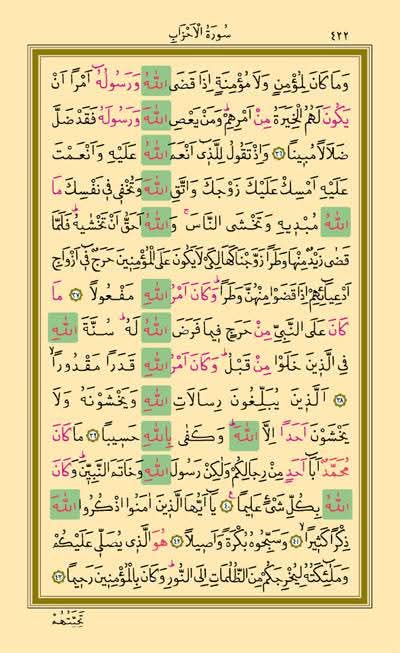 سُورَةُ الْاَحْزَابِ ٤٢٢
وَمَا كَانَ لِمُؤْمِنٍ وَلَا مُؤْمِنَةٍ اِذَا قَضَى اللّٰهُ وَرَسُولُهُٓ اَمْرًا اَنْ
يَكُونَ لَهُمُ الْخِيَرَةُ مِنْ اَمْرِهِمْۜ وَمَنْ يَعْصِ اللّٰهَ وَرَسُولَهُ فَقَدْ ضَلَّ
ضَلَالًا مُبِينًا ﴿٣٦﴾ وَاِذْ تَقُولُ لِلَّذِٓي اَنْعَمَ اللّٰهُ عَلَيْهِ وَاَنْعَمْتَ
عَلَيْهِ اَمْسِكْ عَلَيْكَ زَوْجَكَ وَاتَّقِ اللّٰهَ وَتُخْفِي فِي نَفْسِكَ مَا
اللّٰهُ مُبْدِيهِ وَتَخْشَى النَّاسَۚ وَاللّٰهُ اَحَقُّ اَنْ تَخْشٰيهُۜ فَلَمَّا
قَضٰى زَيْدٌ مِنْهَا وَطَرًا زَوَّجْنَاكَهَا لِكَيْ لَا يَكُونَ عَلَى الْمُؤْمِنِينَ حَرَجٌ فِٓي اَزْوَاجِ
اَدْعِيَٓائِهِمْ اِذَا قَضَوْا مِنْهُنَّ وَطَرًاۜ وَكَانَ اَمْرُ اللّٰهِ مَفْعُولًا ﴿٣٧﴾ مَا
كَانَ عَلَى النَّبِيِّ مِنْ حَرَجٍ فِيمَا فَرَضَ اللّٰهُ لَهُۜ سُنَّةَ اللّٰهِ
فِي الَّذِينَ خَلَوْا مِنْ قَبْلُۜ وَكَانَ اَمْرُ اللّٰهِ قَدَرًا مَقْدُورًاۙ
﴿٣٨﴾ اَلَّذِينَ يُبَلِّغُونَ رِسَالَاتِ اللّٰهِ وَيَخْشَوْنَهُ وَلَا
يَخْشَوْنَ اَحَدًا اِلَّا اللّٰهَۜ وَكَفٰى بِاللّٰهِ حَسِيبًا ﴿٣٩﴾ مَا كَانَ
مُحَمَّدٌ اَبَٓا اَحَدٍ مِنْ رِجَالِكُمْ وَلٰكِنْ رَسُولَ اللّٰهِ وَخَاتَمَ النَّبِيِّنَۜ وَكَانَ
اللّٰهُ بِكُلِّ شَيْءٍ عَلِيمًا۟ ﴿٤٠﴾ يَٓا اَيُّهَا الَّذِينَ اٰمَنُوا اذْكُرُوا اللّٰهَ
ذِكْرًا كَثِيرًاۙ ﴿٤١﴾ وَسَبِّحُوهُ بُكْرَةً وَاَصِيلًا ﴿٤٢﴾ هُوَ الَّذِي يُصَلِّي عَلَيْكُمْ
وَمَلٰٓئِكَتُهُ لِيُخْرِجَكُمْ مِنَ الظُّلُمَاتِ اِلَى النُّورِۜ وَكَانَ بِالْمُؤْمِنِينَ رَحِيمًا ﴿٤٣﴾
تَحِيَّتُهُمْ